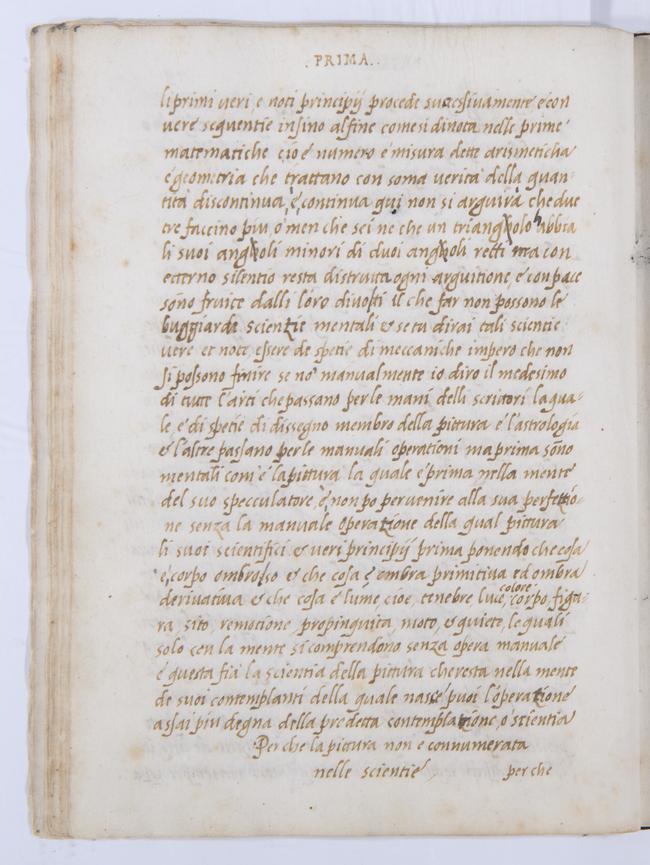 . PRIMA .
li primi veri, e noti principij procede successivamente e con
vere sequentie insino al fine come si dinota nelle prime
matematiche cio è numero e misura dette arismeticha
e geometria che trattano con soma verita della quan-
tità discontinua, e continua qui non si arguirà che due
tre faccino piu, o men che sei ne che un triangholo abbia
li suoi angholi minori di duoi angholi retti ma con
eterno silentio resta distrutta ogni arguitione, e con pace
sono fruite dalli loro divoti il che far non possono le
buggiarde scienzie mentali & se tu dirai tali scientie
vere et note, essere de spetie di meccaniche impero che non
si possono finire se no manualmente io diro il medesimo
di tutte l'arti che passano per le mani delli scrittori la qua-
le, è di spetie di dissegno membro della pittura e l'astrologia
& l'altre passano per le manuali operationi ma prima sono
mentali com' è la pittura la quale è prima nella mente
del suo specculatore, e non po pervenire alla sua perfettio-
ne senza la manuale operazione della qual pittura
li suoi scientifici & veri principij prima ponendo che cosa
è, corpo ombroso & che cosa è ombra primitiva ed ombra
derivativa & che cosa è lume, cioe, tenebre, luce, colore, corpo, figu-
ra, sito, remotione, propinquita, moto, & quiete, le quali
solo con la mente si comprendono senza opera manuale
e questa fia la scientia della pittura che resta nella mente
de suoi contemplanti della quale nasce puoi l'operazione
assai piu degna della predetta contemplazione, o scientia
Perche la pittura non e connumerata
nelle scientie perche